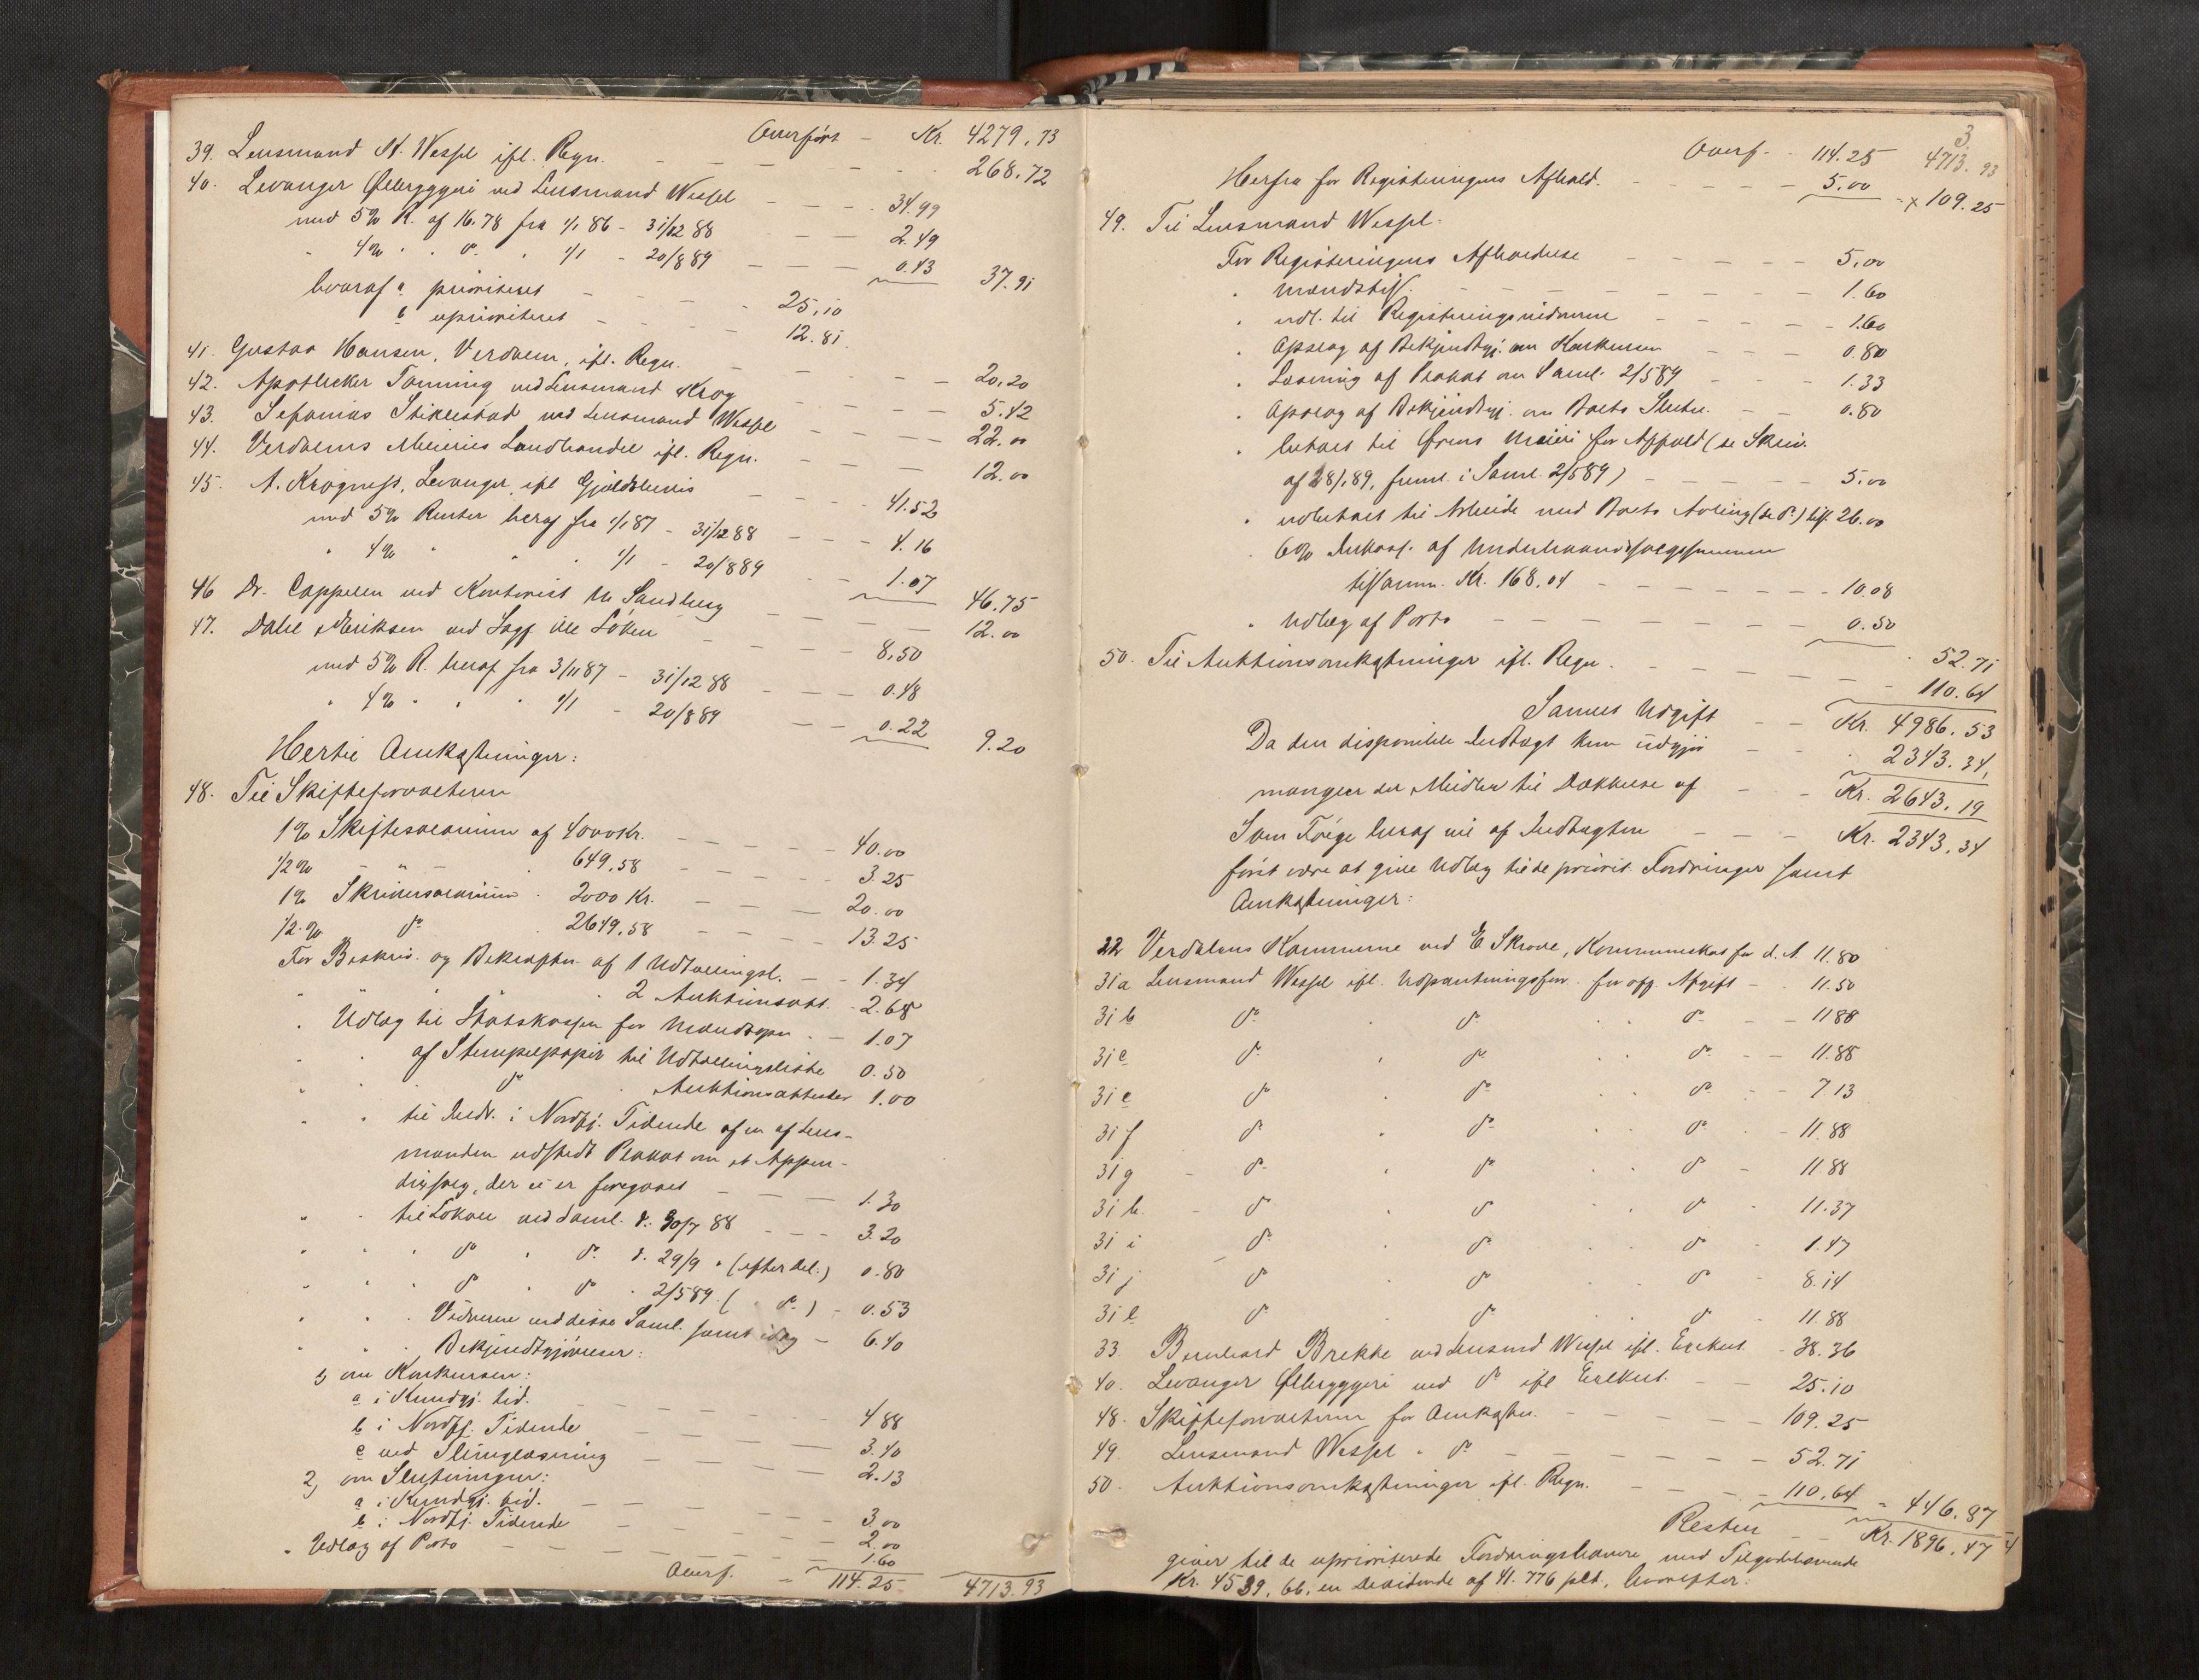 Overført - Kr. 4279.73
39. Lensmand N. Wessel ifl. Regn. 268.72
40. Levanger Ølbryggeri ved Lensmand Wessel - - - 34.99
med 5% R. af 16.78 fra 1/1 86 - 31/12 88 - - 2.49
" 4% " " d. " 1/1 - 20/8 89 - - - 0.43 37.91
hvoraf a prioriteret - - - - 25.10
b uprioriteret - - - - 12.81.
41. Gustav Hansen, Verdalen, ifl. Regn. - - - - 20.20
42. Apotheker Tønning ved Lensmand Krog - - - 5.42
43. Sefanias Stiklestad ved Lensmand Wessel - - - 22.00
44. Verdalens Meieries Landhandel ifl. Regn. - - - 12.00
45. A. Krogness, Levanger, ifl Gjeldsbevis - - - 41.52
med 5% Renter heraf fra 1/1 87 - 31/12 88 - - - 4.16
" 4% " " " 1/1 - 20/8 89 - - 1.07 46.75
46 Dr. Cappelen ved Kontorist M Sandberg - - - 12.00
47. Dahl & Eriksen ved Sagf. Ole Løken - - - 8.50
med 5% R. heraf fra 3/11 87 - 31/12 88 - - - 0.48
" 4% " " " 1/1 - 20/8 89 - - 0.22 9.20
Hertil Omkostninger:
48. Til Skifteforvalteren
1% Skiftesalarium af 4000 Kr. - - - - - 40.00
1/2% - " - 649.58 - - - - - 3.25
1% Skriversalarium " 2000 Kr. - - - - 20.00
1/2 % d. " 2649.58 - - - - 13.25
For Beskriv. og Bekræften af 1 Udtallingsl. - - 1.34
" " " 2 Auktionsatt. - 2.68
" Udlæg til Statskassen for - 1.07
" " af Stempelpapir til Udtallingsliste 0.50
" " d. " Auktionsattester 1.00
" " til Indr. i Nordtj. Tidende af en af Lens-
manden udstedt Plakat om et Appen-
dixsalg, der ei er foregaaet - - - 1.30
" " til Lokale ved Saml. d. 30/7 88 - - - 3.20
" " " d. " d. d. 29/9 " (efter Del.) 0.80
" " " d. " d. " 2/5 89. ( " d. ) - 0.53
" " " Vidnerne ved disse Saml. samt idag - 6.40
" " Bekjendtgjørelser:
1) om Konkursen:
a i Kundgj. tid. - - - - - 4.88
b i Nordtj. Tidende - - - - 3.40
c ved Thinglæsning - - - - 2.13
2) om Slutningen:
a i Kundgj. tid. - - - - - 3.00
b i Nordtj. Tidende - - - - 2.00
" Udlæg af Porto - - - - - 1.60
Overf. - 114.25 4713.93
3.
Overf. - - 114.25 4713.93
Herfra for Registreringens Afhold. - - - - - 5.00 - x 109.25
49. Til Lensmand Wessel:
For Registreringens Afholdelse - - - - - 5.00
" - - - - - 1.60
" udl. til Registreringsvidnerne - - - - 1.60
" Opslag af Bekjendtgj. om Konkursen - - - 0.80
" Læsning af Plakat om Saml. 2/5 89 - - - 1.33
" Opslag af Bekjendtgj. om Boets Slutn. - - 0.80
" betalt til Ørens Meieri for Ophold (se Skriv.
af 28/1 89, freml. i Saml. 2/5 89) - - - - 5.00
" udbetalt til Arbeide med Boets Avling (se d.) till. 26.00
" 6% Inkass. af Underhaandssalgssummen
tilsamm. Kr. 168.04 - - - - - 10.08
" Udlæg af Porto - - - - - 0.50 52.71
50. Til Auktionsomkostninger ifl. Regn. - - - - - 110.64
Samlet Udgift - - Kr. 4986.53
Da den disponible Indtægt kun udgjør - - 2343.34,
mangler der Midler til Dækkelse af - - Kr. 2643.19
Som Følge heraf vil af Indtægten - - - Kr. 2343.34
først være at give Udlæg til de priorit. Fordringer samt
Omkostninger:
22 Verdalens Kommune ved E Skrove, Kommuneskat for d. A. 11.80
31a Lensmand Wessel ifl. Udpantningsforr. for off. Afgift - . 11.50
31 b d. . d. . . d. - - 11.88
31 c d. . d. . . d. - - 11.88
31 e d. . d. . . d. - - 7.13
31 f d. . d. . . d. - - 11.88
31 g - d. . d. . . d. - 11.88
31 h. - d. . d. . . d. - 11.37
31 i d. . d. . . d. - 1.47
31 j d. . d. . . d. - 8.14
31 l d. . d. . . d. - 11.88
33. Bernhard Brekke ved Lensmd Wessel ifl. Exekut. - 38.36
40. Levanger Ølbryggeri ved d. ifl Exekut. - - 25.10
48. Skifteforvalteren for Omkostn. - - - - - 109.25
49 Lensmand Wessel " d. - - - - - 52.71
50. Auktionsomkostninger ifl. Regn. - - - - 110.64 = 446.87
Resten - - Kr. 1896.47
giver til de uprioriterede Fordringshavere med Tilgodehavende
Kr. 4539.66, en Dividende af 41.776 pCt., hvorefter: